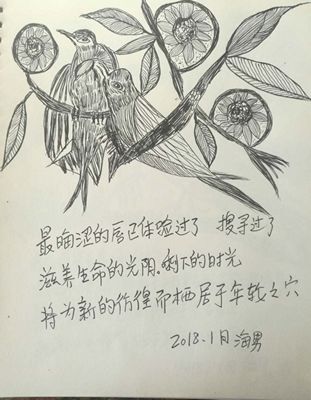 最晦涩的唇已体验过了 搜寻过了
滋养生命的光阴。剩下的时光
将为新的彷徨而栖居于年轮之穴
2018.1月 海男